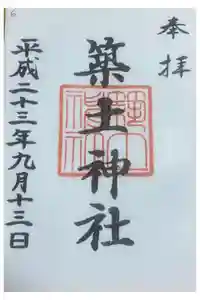 奉拝
築土神社
平成二十三年九月十三日